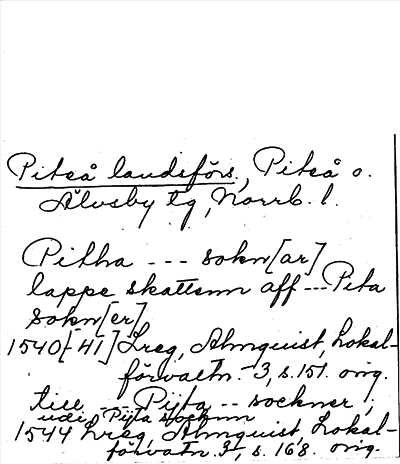 Piteå landsförs., Piteå o.
Älvsby tg, Norrb. l.
Pitha --- sokn[ar]
lappe skattenn aff --- Pita
sokn[er]
1540[-41] Lreg, Almquist, Lokal-
förvaltn. 3, s. 151. orig.
till -- Pijta -- sockner,
udi Pijta socknn
1544 Lreg, Almquist, Lokal-
förvaltn. 3, s. 168. orig.